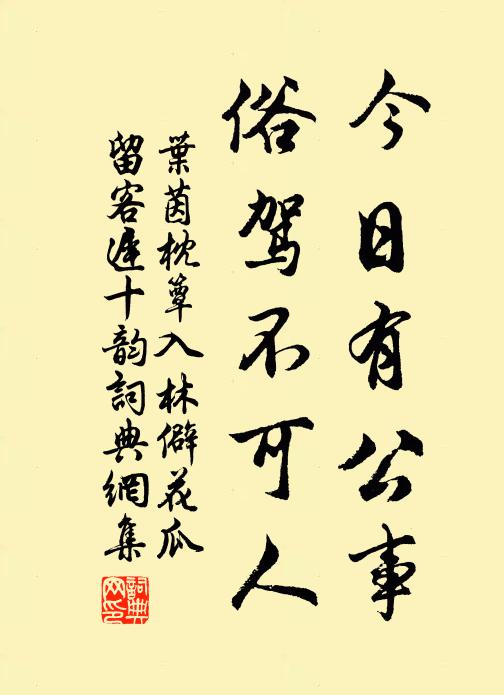 今日有公事
俗驾不可人
葉茵枕簟入林僻花瓜
留客遲十韵詞典網集
詞典网印